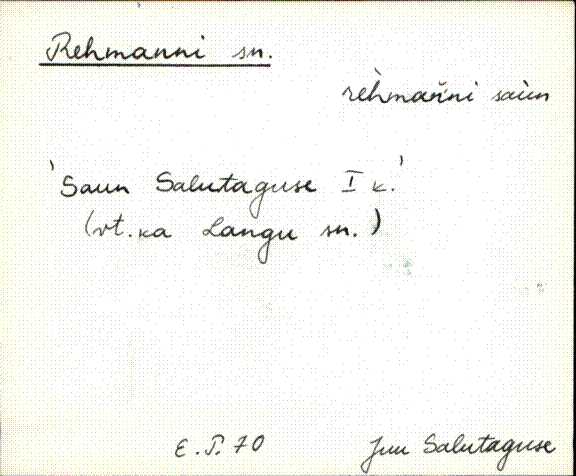 Rehmanni sn.
rèhman̆ni saùn
'Saun Salutaguse I k.'
(vt. ka Langu sn.)
E. P. 70
Juu Salutaguse